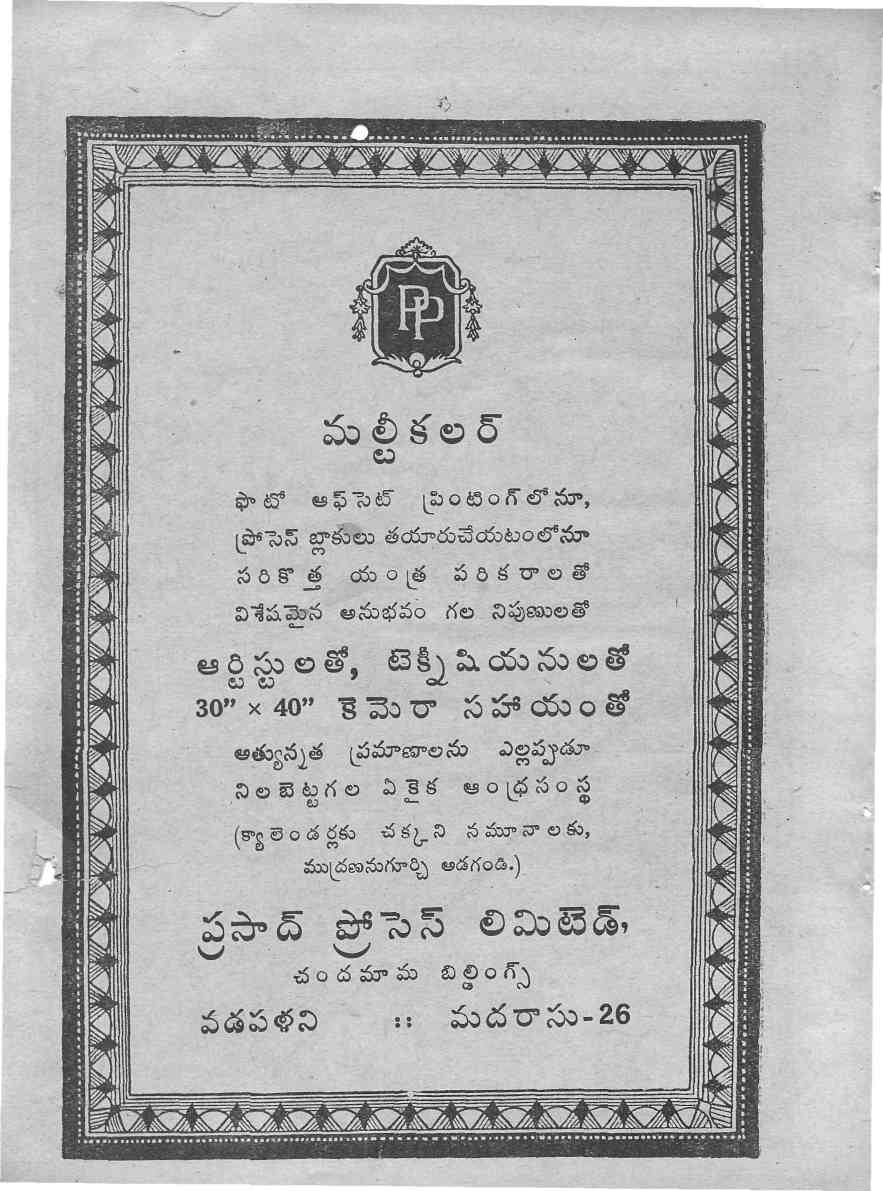 PP
మల్టీకలర్
ఫొటో ఆఫ్‌సెట్ ప్రింటింగ్‌లోనూ,
ప్రోసెస్ బ్లాకులు తయారుచేయటంలోనూ
సరికొత్త యంత్ర పరికరాలతో
విశేషమైన అనుభవం గల నిపుణులతో
ఆర్టిస్టులతో, టెక్నీషియనులతో
30” × 40” కెమెరా సహాయంతో
అత్యున్నత ప్రమాణాలను ఎల్లప్పుడూ
నిలబెట్టగల ఏకైక ఆంధ్రసంస్థ
(క్యాలెండర్లకు చక్కని నమూనాలకు,
ముద్రణనుగూర్చి అడగండి.)
ప్రసాద్ ప్రోసెస్ లిమిటెడ్,
చందమామ బిల్డింగ్స్
వడపళని :: మదరాసు-26